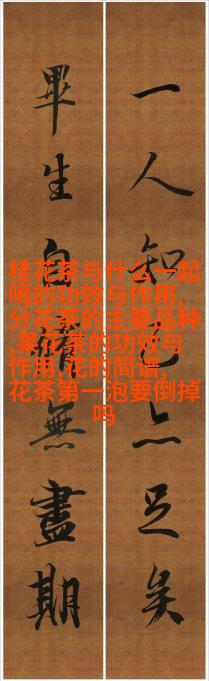 一人知己亦足矣
畢生自無盡期
桂花茶与什么一起
喝的功效与作用,
分花茶的主要品种
,果花茶的功效与
作用,花的简谱,
花茶第一泡要倒掉
吗